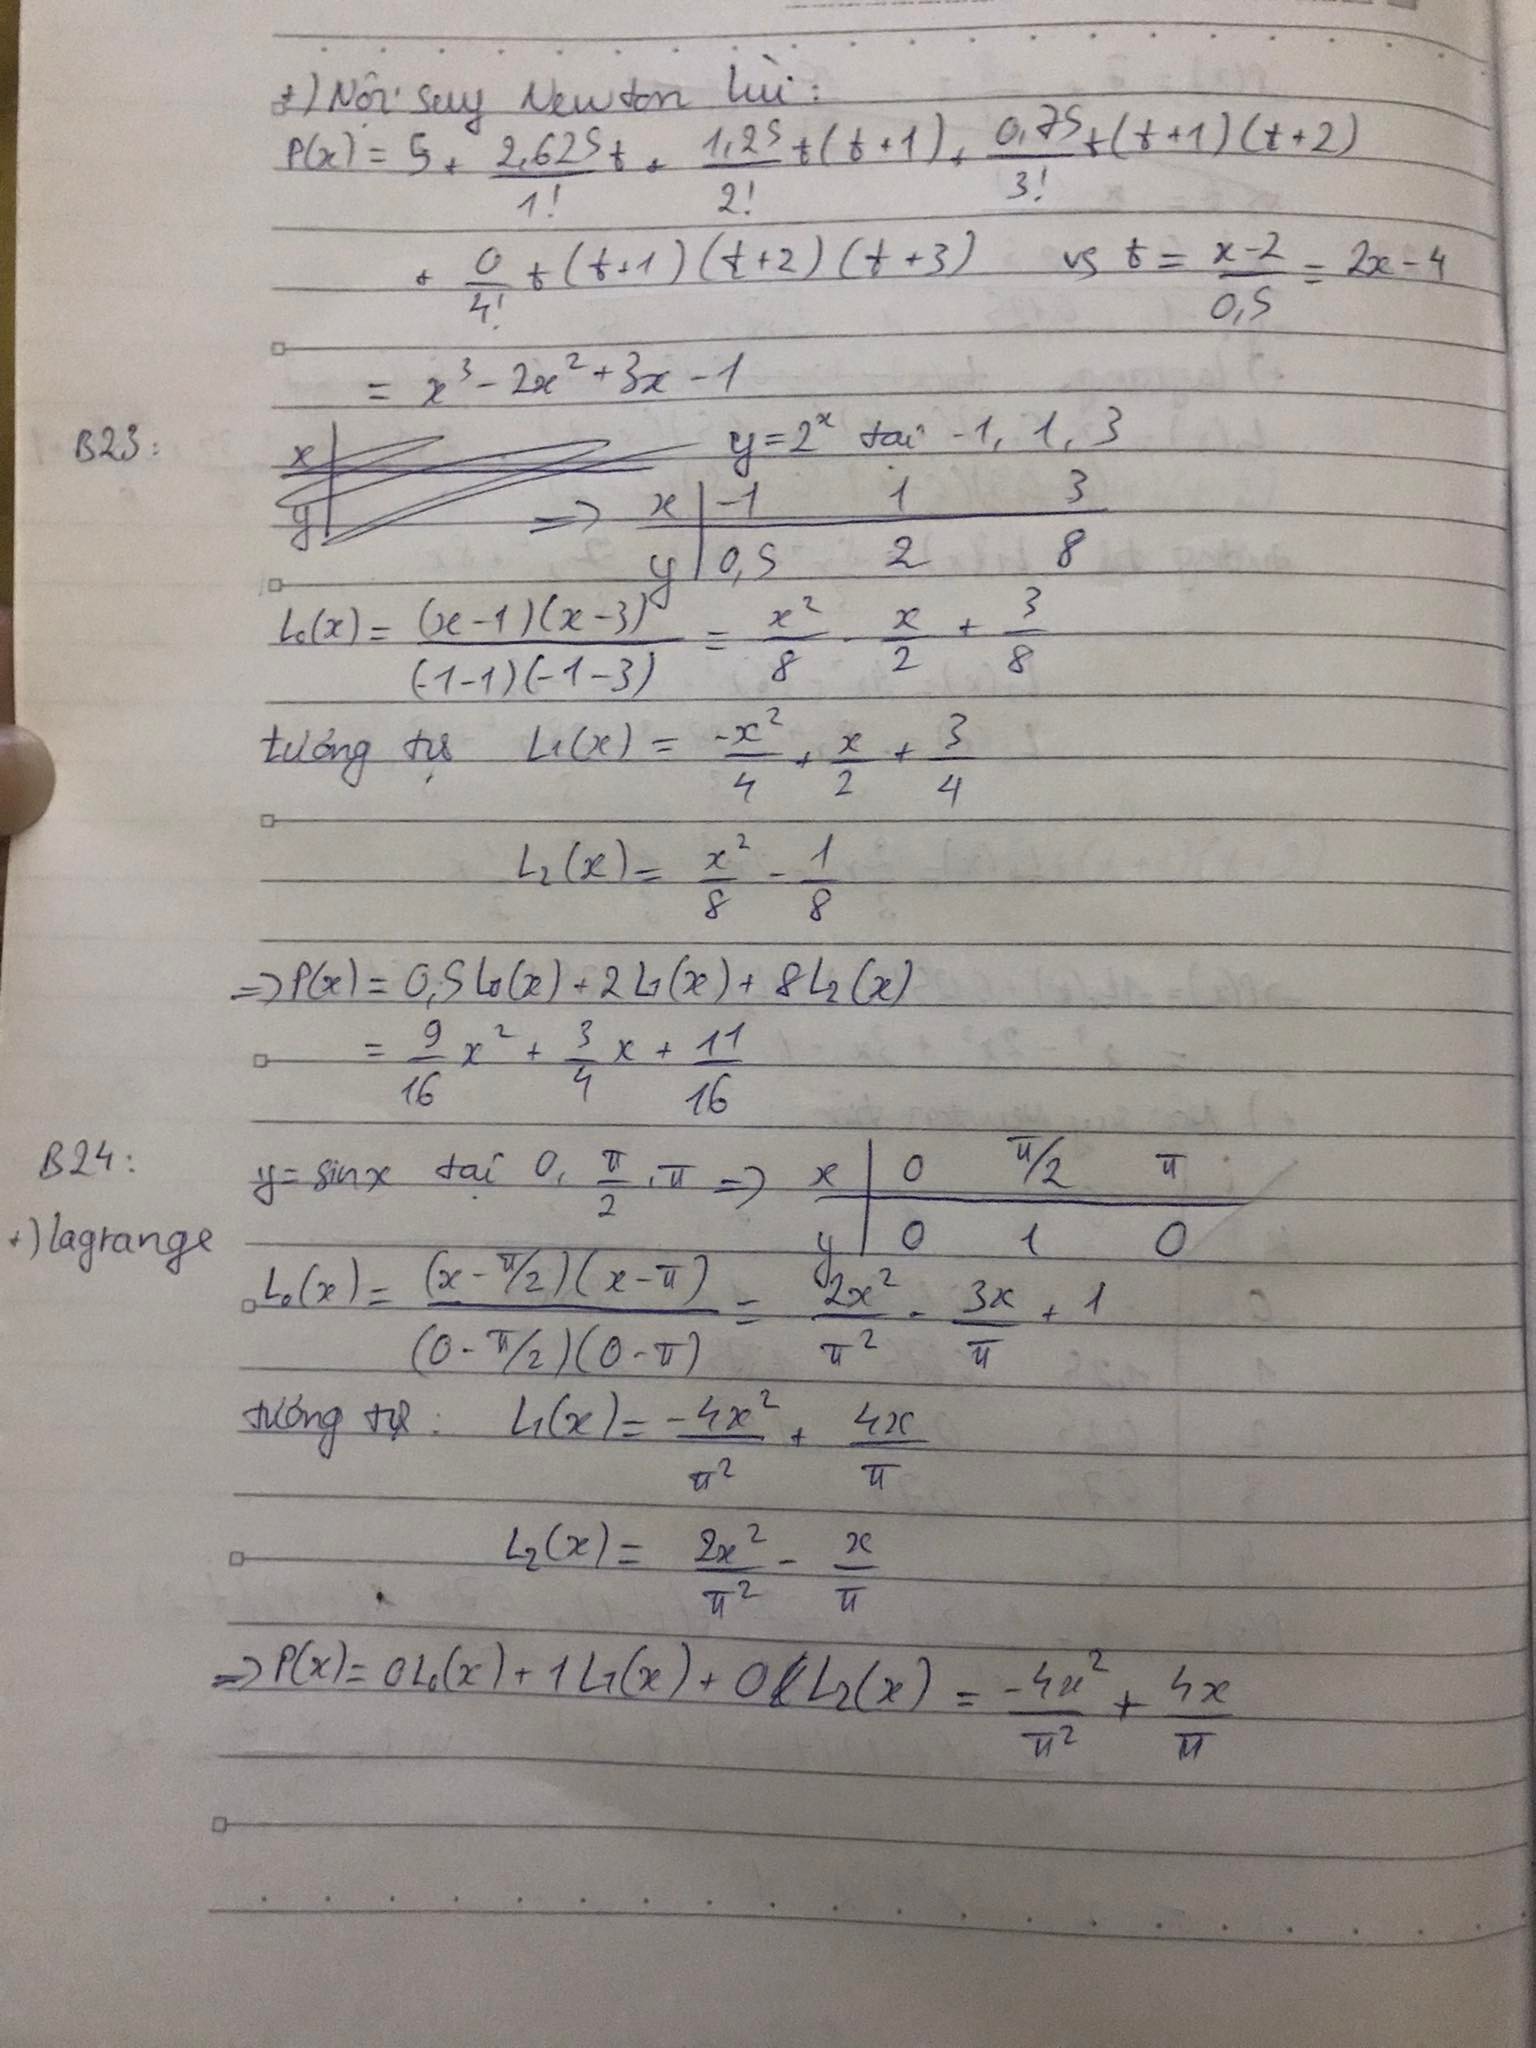 +) Nội suy Newton lùi:
P(x) = 5 + 2,625/1! t + 1,25/2! t(t+1) + 0,75/3! t(t+1)(t+2)
+ 0/4! t(t+1)(t+2)(t+3) vs t = x-2/0,5 = 2x-4
= x³ - 2x² + 3x - 1
B23: y = 2ˣ tại -1, 1, 3
=> x | -1 1 3
y | 0,5 2 8
L₀(x) = (x-1)(x-3)/(-1-1)(-1-3) = x²/8 - x/2 + 3/8
tương tự L₁(x) = -x²/4 + x/2 + 3/4
L₂(x) = x²/8 - 1/8
=> P(x) = 0,5L₀(x) + 2L₁(x) + 8L₂(x)
= 9/16 x² + 3/4 x + 11/16
B24: y = sinx tại 0, π/2, π => x | 0 π/2 π
+) lagrange y | 0 1 0
L₀(x) = (x-π/2)(x-π)/(0-π/2)(0-π) = 2x²/π² - 3x/π + 1
tương tự: L₁(x) = -4x²/π² + 4x/π
L₂(x) = 2x²/π² - x/π
=> P(x) = 0L₀(x) + 1L₁(x) + 0L₂(x) = -4x²/π² + 4x/π